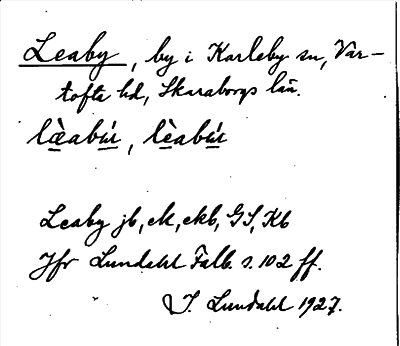 Leaby, by i Karleby sn, Var-
tofta hd, Skaraborgs län.
Leaby jb, ek, ekb, GS, Kb
Jfr Lundahl Falb. s. 102 ff.
I. Lundahl 1927.